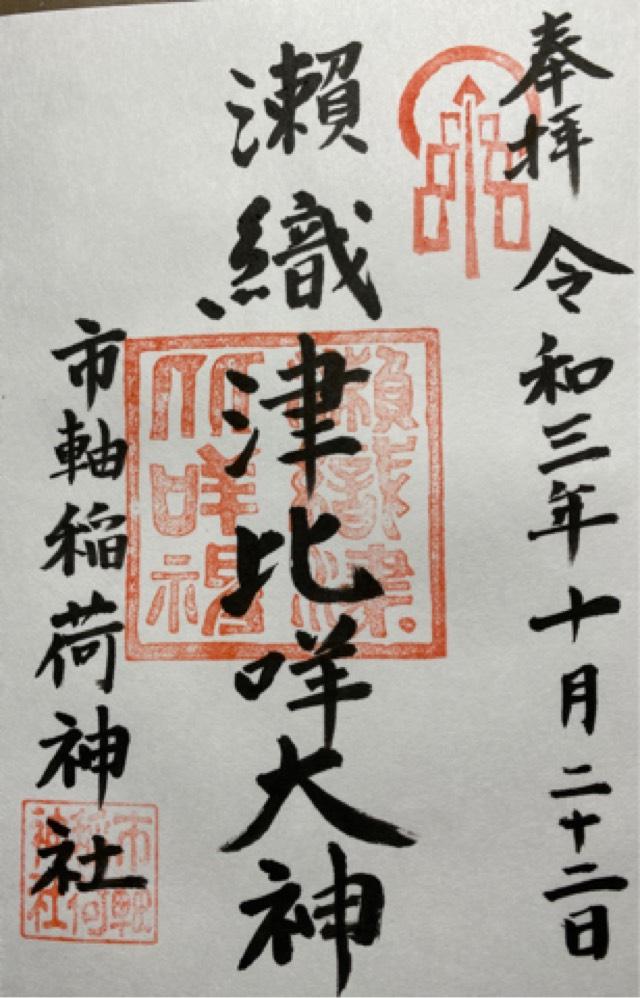 奉拝 令和三年十月二十二日
瀬織津比咩大神
市軸稲荷神社
市軸稲荷神社